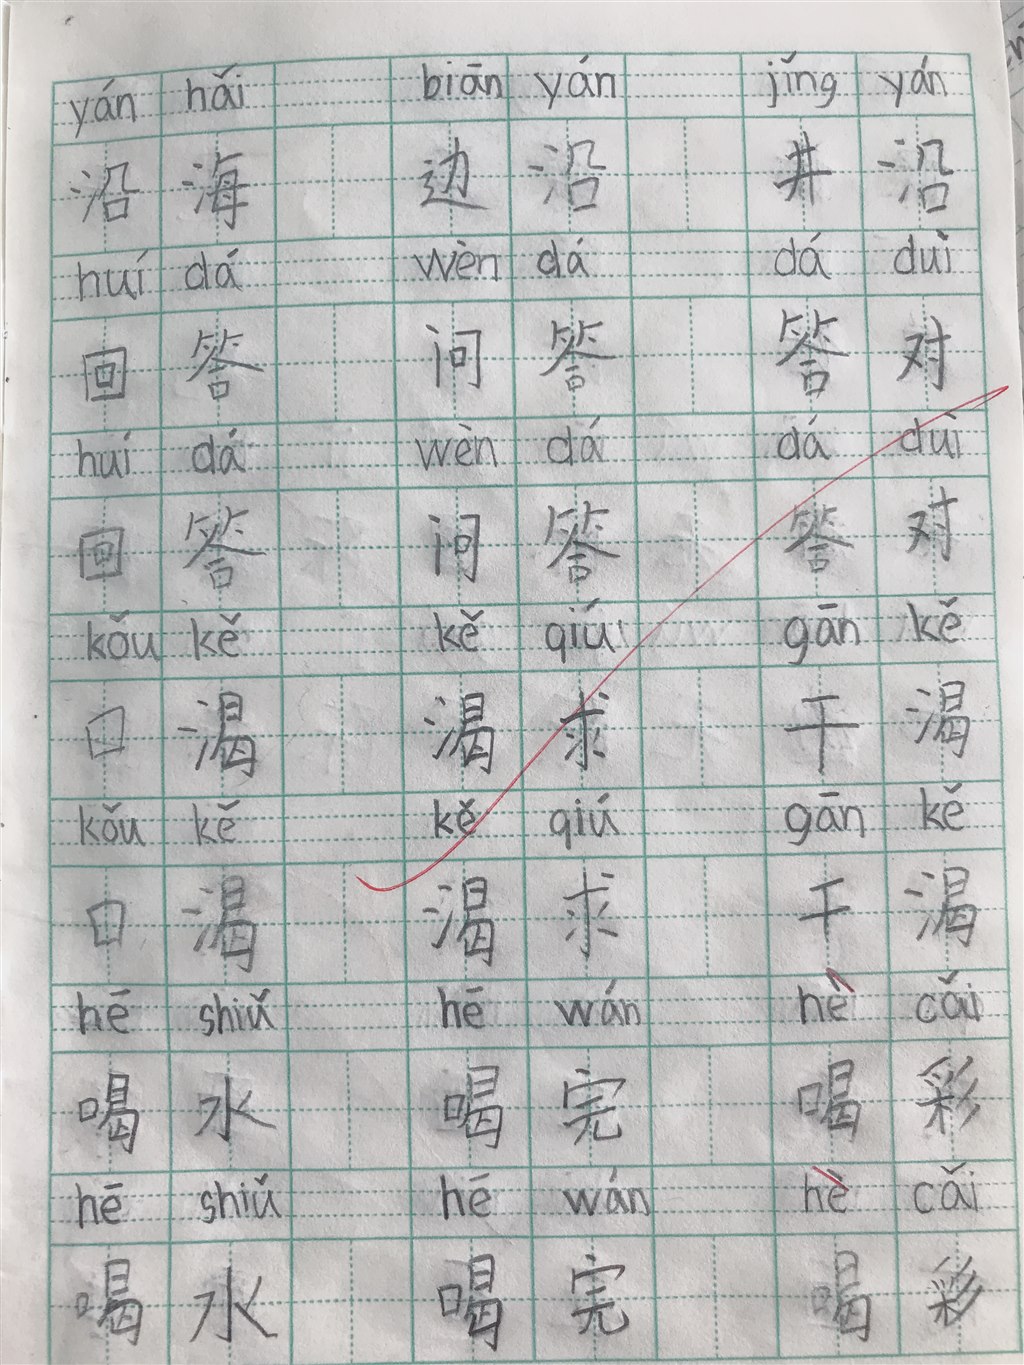 yán hǎi biān yán jǐng yán
沿 海 边 沿 井 沿
huí dá wèn dá dá duì
回 答 问 答 答 对
huí dá wèn dá dá duì
回 答 问 答 答 对
kǒu kě kě qiú gān kě
口 渴 渴 求 干 渴
kǒu kě kě qiú gān kě
口 渴 渴 求 干 渴
hē shiǔ hē wán hè cǎi
喝 水 喝 完 喝 彩
hē shiǔ hē wán hè cǎi
喝 水 喝 完 喝 彩